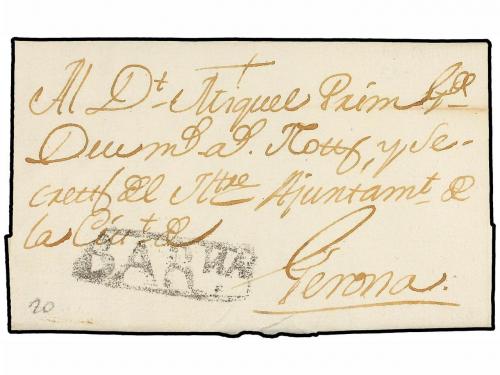 Al Dt. Miquel Prim
y Se-
crett del Iltre Ajuntamt. de
la Ciut. de
BARNA
Gerona.
20